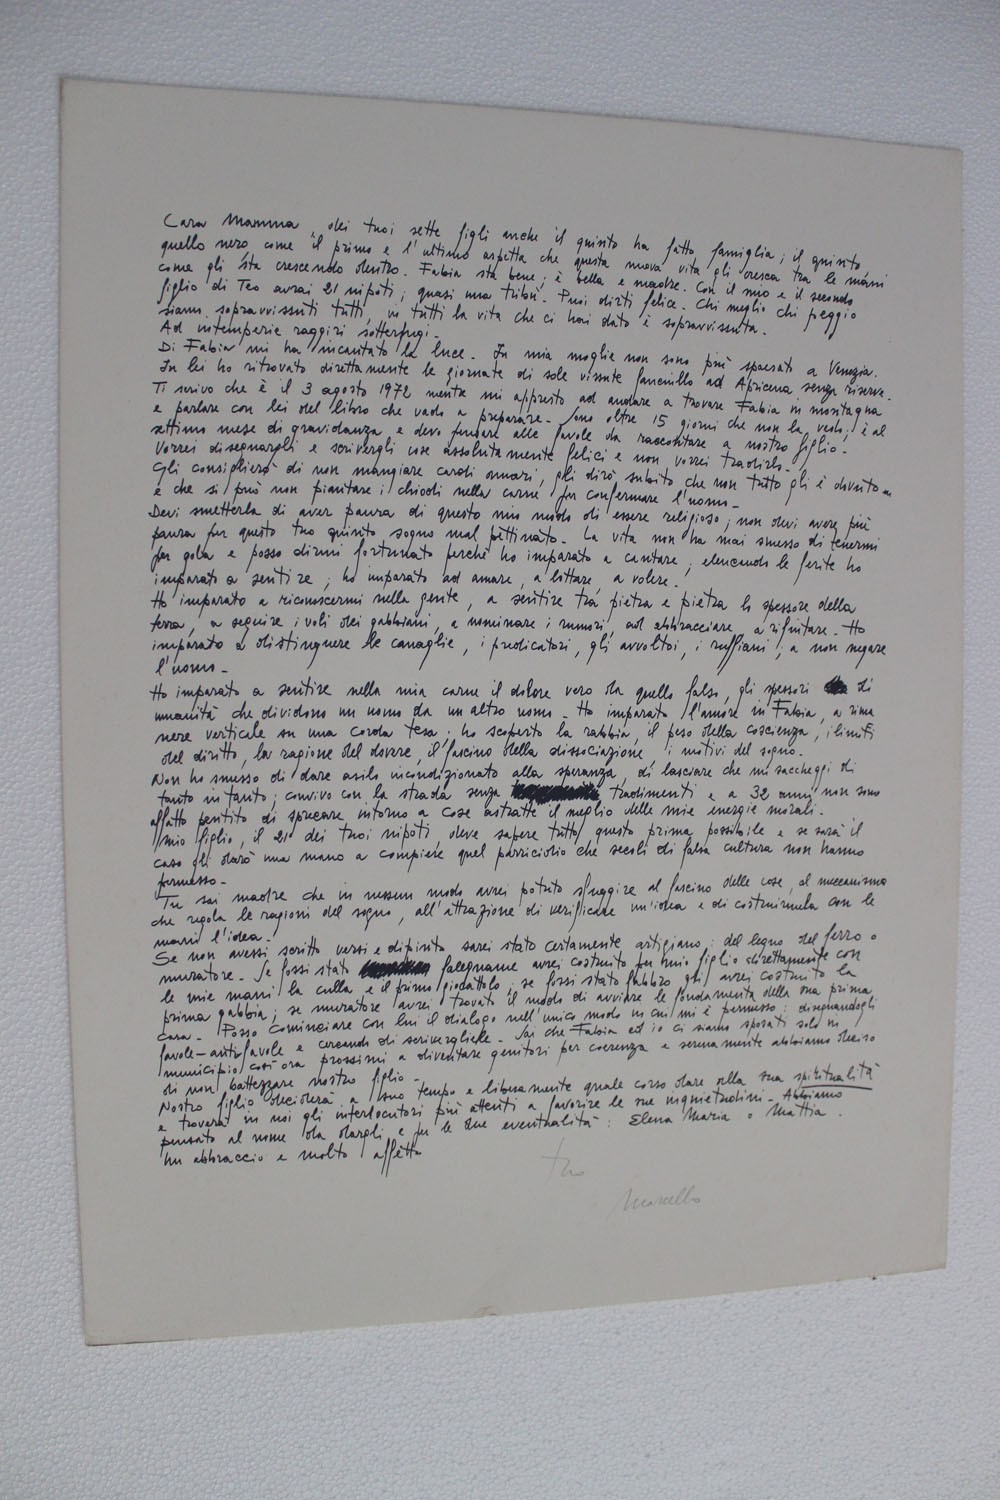 Cara Mamma, dei tuoi sette figli anche il quinto ha fatto famiglia; il quinto
quello nero come il primo e l'ultimo aspetta che questa nuova vita gli cresca tra le mani
come gli sta crescendo dentro. Fabia sta bene; è bella e madre. Con il mio e il secondo
figlio di Teo avrai 21 nipoti; quasi una tribù. Puoi dirti felice. Chi meglio chi peggio
siamo sopravvissuti tutti, in tutti la vita che ci hai dato è sopravvissuta.
Ad intemperie raggiri sotterfugi.
Di Fabia mi ha incantato la luce. In mia moglie non sono più spaesato a Venezia.
In lei ho ritrovato direttamente le giornate di sole vissute fanciullo ad Apricena senza riserve.
Ti scrivo che è il 3 agosto 1972 mentre mi appresto ad andare a trovare Fabia in montagna
e parlare con lei del libro che vado a preparare. Sono oltre 15 giorni che non la vedo; è al
settimo mese di gravidanza e devo pensare alle favole da raccontare a nostro figlio.
Vorrei disegnargli e scrivergli cose assolutamente felici e non vorrei tradirlo.
Gli consiglierò di non mangiare cardi amari, gli dirò subito che non tutto gli è dovuto
e che si può non piantare i chiodi nella carne per confermare l'uomo.
Devi smetterla di aver paura di questo mio modo di essere religioso; non devi avere più
paura per questo tuo quinto sogno mal pettinato. La vita non ha mai smesso di tenermi
per gola e posso dirmi fortunato perché ho imparato a cantare; elencando le ferite ho
imparato a sentire; ho imparato ad amare, a lottare, a volere.
Ho imparato a riconoscermi nella gente, a sentire tra pietra e pietra lo spessore della
terra, a seguire i voli dei gabbiani, a nominare i rumori, ad abbracciare, a rifiutare. Ho
imparato a distinguere le canaglie, i predicatori, gli avvoltoi, i ruffiani; a non negare
l'uomo.
Ho imparato a sentire nella mia carne il dolore vero da quello falso, gli spessori di
umanità che dividono un uomo da un altro uomo. Ho imparato l'amore in Fabia, a rima
nere verticale su una corda tesa; ho scoperto la rabbia, il peso della coscienza, i limiti
del diritto, la ragione del dovere, il fascino della dissociazione, i motivi del sogno.
Non ho smesso di dare asilo incondizionato alla speranza, di lasciare che mi saccheggi di
tanto in tanto; convivo con la strada senza tradimenti e a 32 anni non sono
affatto pentito di sprecare intorno a cose astratte il meglio delle mie energie morali.
Mio figlio, il 21° dei tuoi nipoti, deve sapere tutto questo prima possibile e se sarà il
caso gli darò una mano a compiere quel parricidio che secoli di falsa cultura non hanno
permesso.
Tu sai madre che in nessun modo avrei potuto sfuggire al fascino delle cose, al meccanismo
che regola le ragioni del sogno, all'attrazione di verificare un'idea e di costruirmela con le
mani l'idea.
Se non avessi scritto versi e dipinto sarei stato certamente artigiano: del legno del ferro o
muratore. Se fossi stato falegname avrei costruito per mio figlio direttamente con
le mie mani la culla e il primo giocattolo; se fossi stato fabbro gli avrei costruito la
prima gabbia; se muratore avrei trovato il modo di avviare le fondamenta della sua prima
casa. Posso cominciare con lui il dialogo nell'unico modo in cui mi è permesso: disegnandogli
favole-antifavole e cercando di scrivergliele. Sai che Fabia ed io ci siamo sposati solo in
municipio così ora prossimi a diventare genitori per coerenza e serenamente abbiamo deciso
di non battezzare nostro figlio.
Nostro figlio deciderà a suo tempo e liberamente quale corso dare alla sua spiritualità
e troverà in noi gli interlocutori più attenti a favorire le sue inquietudini. Abbiamo
pensato al nome da dargli e per le due eventualità: Elena Maria o Mattia.
Un abbraccio e molto affetto
tuo
Marcello